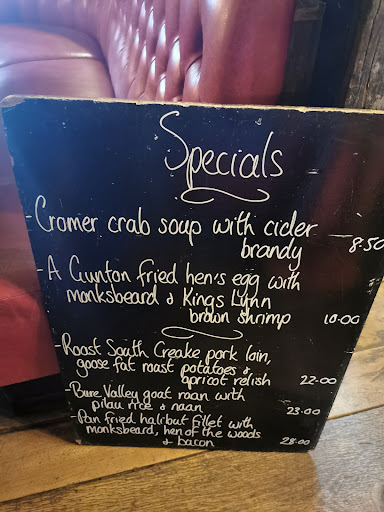 Specials
-Cromer crab soup with cider
brandy 8.50
-A Gunton fried hen's egg with
monksbeard & Kings Lynn
brown shrimp 10.00
-Roast South Creake pork loin,
goose fat roast potatoes &
apricot relish 22.00
-Bure Valley goat roan with
pilau rice & naan 23.00
-Pan fried halibut fillet with
monksbeard, hen of the woods
& bacon 28.00